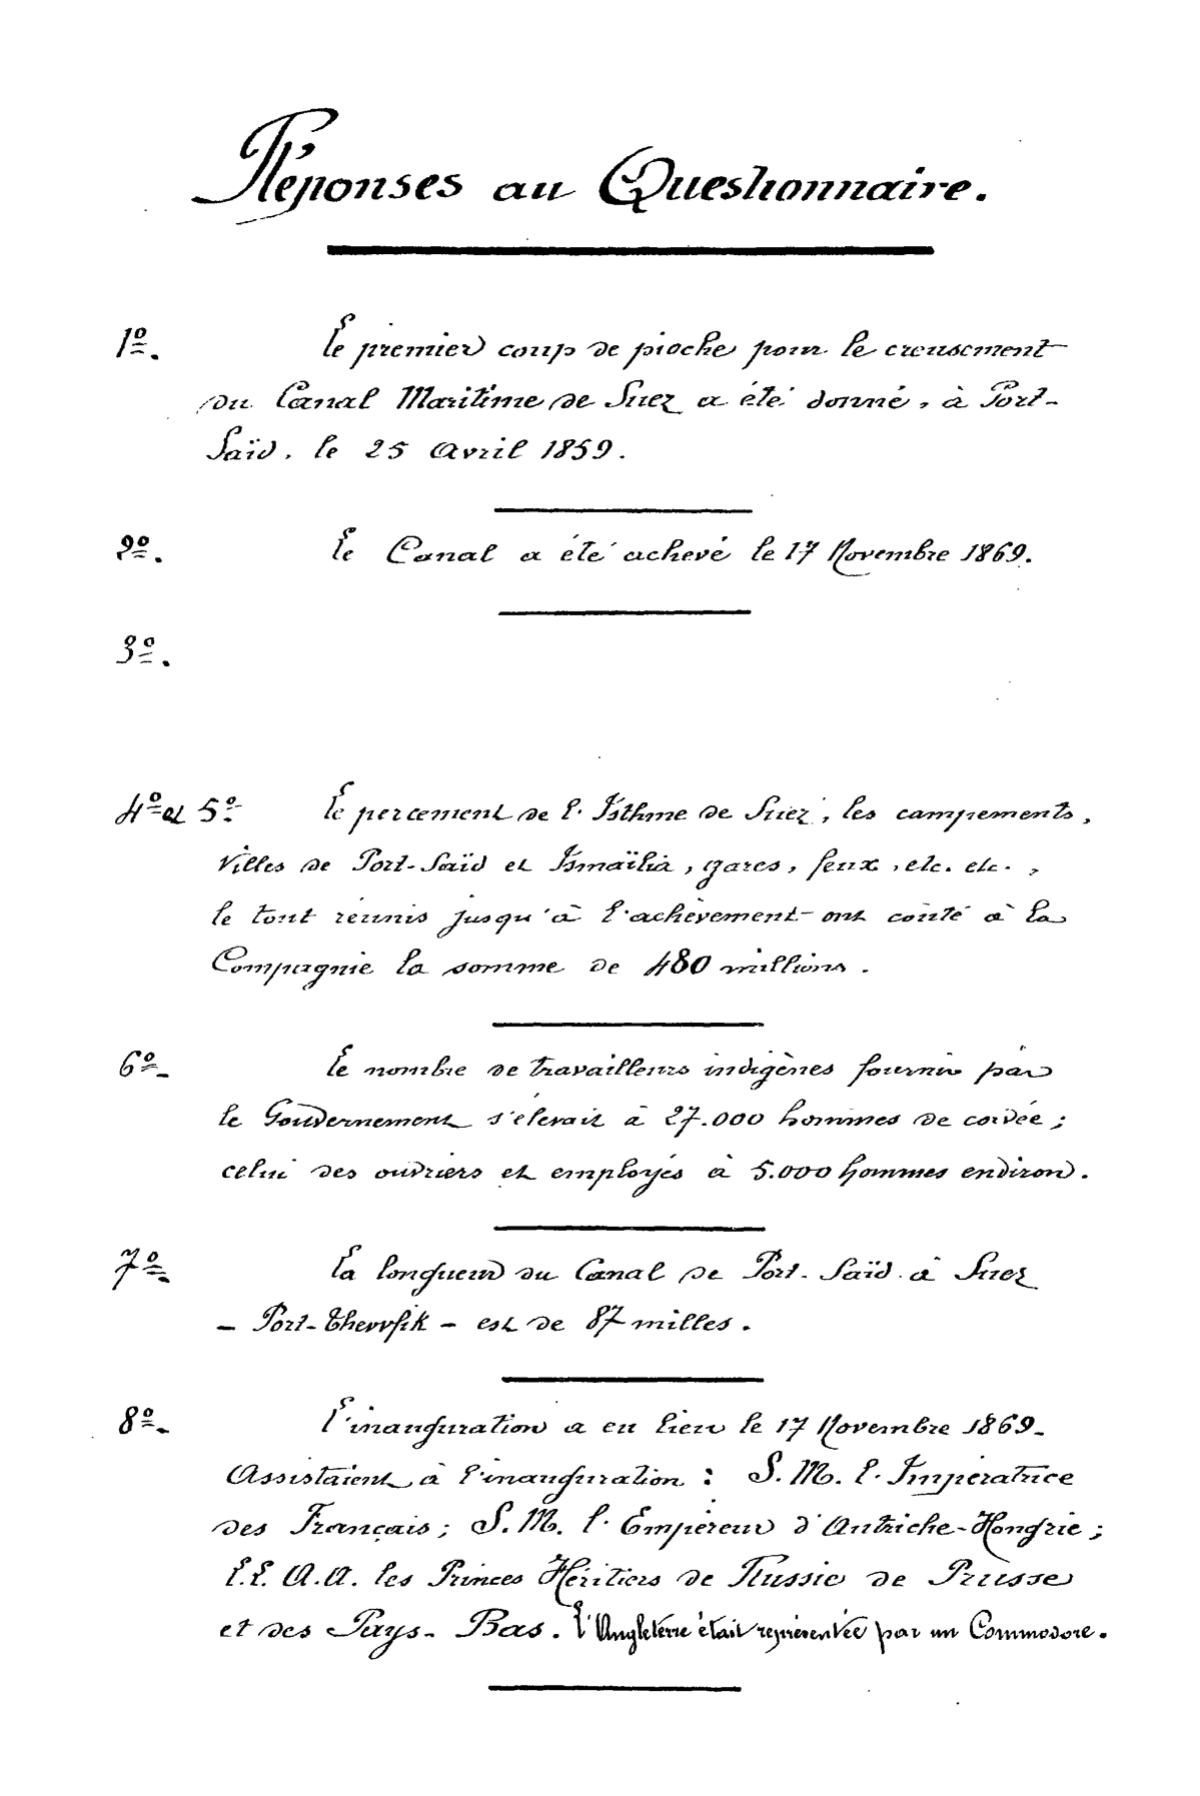 Réponses au Questionnaire.
1º. Le premier coup de pioche pour le creusement
du Canal Maritime de Suez a été donné, à Port-
Saïd, le 25 Avril 1859.
2º. Le Canal a été achevé le 17 Novembre 1869.
3º.
4º et 5º. Le percement de l'Isthme de Suez, les campements,
villes de Port-Saïd et Ismaïlia, gares, feux, etc. etc.,
le tout réunis jusqu'à l'achèvement ont coûté à la
Compagnie la somme de 480 millions.
6º. Le nombre de travailleurs indigènes fournis par
le Gouvernement s'élevait à 27.000 hommes de corvée;
celui des ouvriers et employés à 5.000 hommes environ.
7º. La longueur du Canal de Port-Saïd à Suez
- Port-Thewfik - est de 87 milles.
8º. L'inauguration a eu lieu le 17 Novembre 1869.
Assistaient à l'inauguration : S.M. l'Impératrice
des Français; S.M. l'Empereur d'Autriche-Hongrie;
L.L. A.A. les Princes Héritiers de Russie de Prusse
et des Pays-Bas. L'Angleterre était représentée par un Commodore.